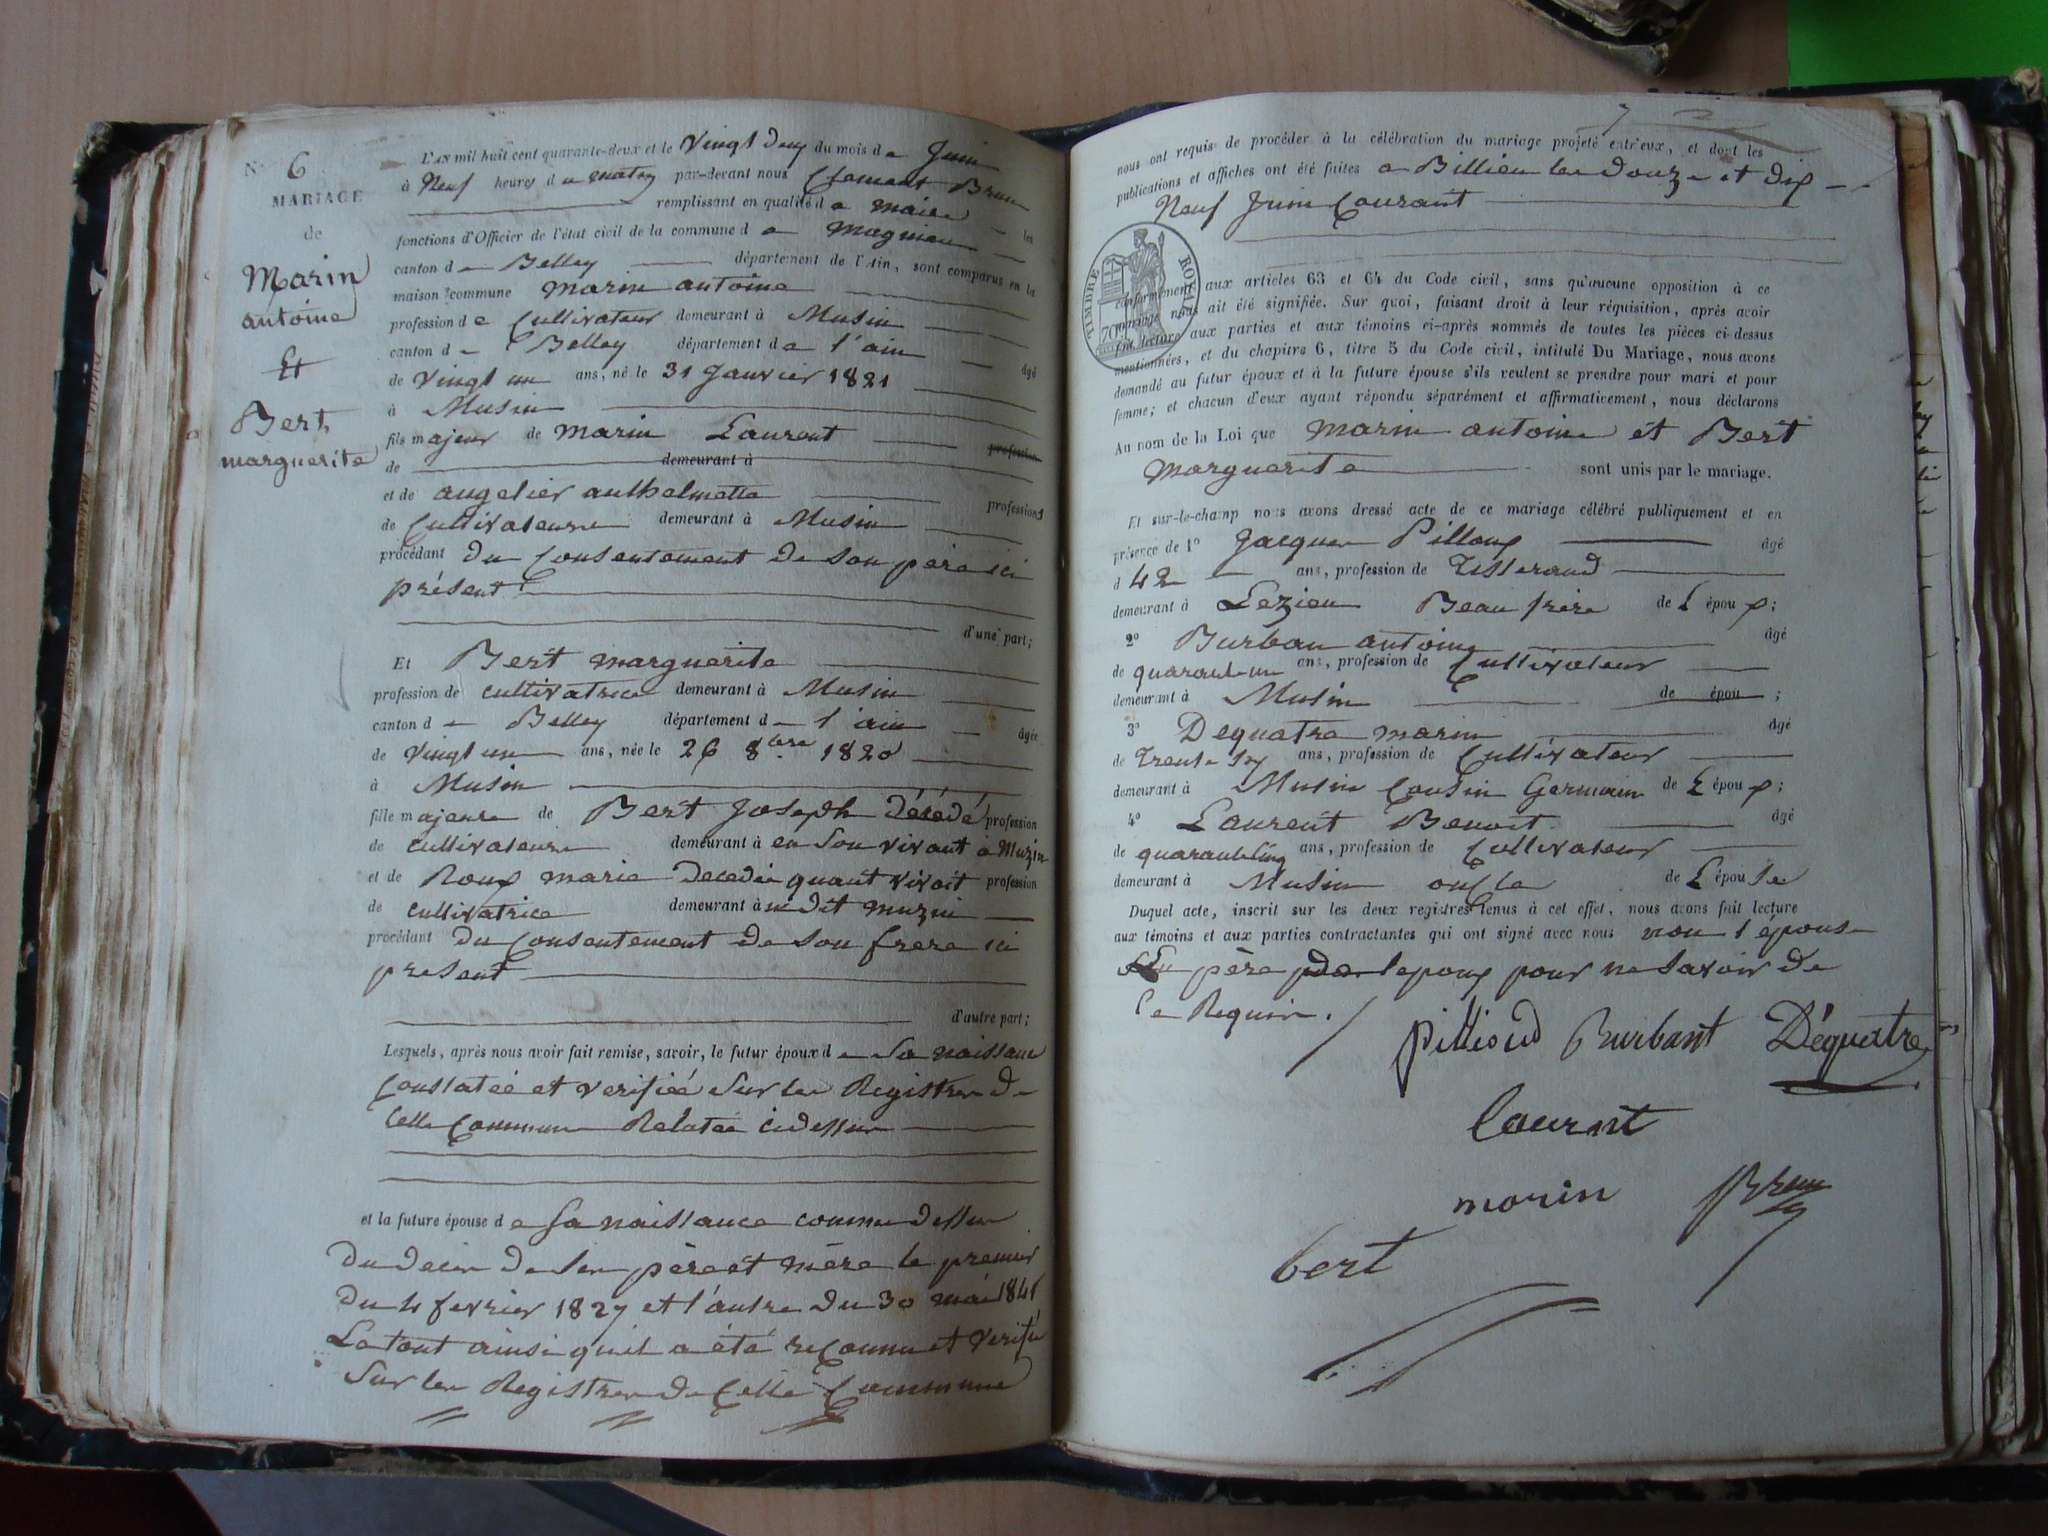 N° 6
MARIAGE
de
Marin
antoine
Et
Bert
marguerite
L'AN mil huit cent quarante-deux et le Vingt deux du mois de Juin
à Neuf heures du matin par-devant nous Clement Brun
remplissant en qualité de maire les
fonctions d'Officier de l'état civil de la commune de magnieu
canton de Belley département de l'Ain, sont comparus en la
maison commune marin antoine
profession de Cultivateur demeurant à Musin
canton de Belley département de l'ain âgé
de vingt un ans, né le 31 Janvier 1821
à Musin
fils majeur de marin Laurent profession
de demeurant à
et de angelier anthelmette professions
de Cultivateurs demeurant à Musin
procédant du Consentement de son père ici
présent
d'une part;
Et Bert marguerite
profession de cultivatrice demeurant à Musin
canton de Belley département de l'ain âgée
de vingt un ans, née le 26 8bre 1820
à Musin
fille majeure de Bert Joseph décédé profession
de cultivateur demeurant à en Son vivant à Muzin
et de Roux marie Decedée quant vivoit profession
de cultivatrice demeurant à dit muzin
procédant du Consentement de Son frere ici
present
d'autre part;
Lesquels, après nous avoir fait remise, savoir, le futur époux de Sa naissance
Constatée et verifiée Sur les Registres de
Celle Commune Relatée cidessus
et la future épouse de Sa naissance comme dessus
du deces de Ses père et mère le premier
du 4 fevrier 1827 et l'autre du 30 mai 1841
Le tout ainsi quil a été reconnu et verifié
Sur les Registres de Celle Commune
nous ont requis de procéder à la célébration du mariage projeté entr'eux, et dont les
publications et affiches ont été faites a Billieu les Douze et dix
Neuf Juin Courant
TIMBRE ROYAL
70
conformément aux articles 63 et 64 du Code civil, sans qu'aucune opposition à ce
mariage nous ait été signifiée. Sur quoi, faisant droit à leur réquisition, après avoir
fait lecture aux parties et aux témoins ci-après nommés de toutes les pièces ci-dessus
mentionnées, et du chapitre 6, titre 5 du Code civil, intitulé Du Mariage, nous avons
demandé au futur époux et à la future épouse s'ils veulent se prendre pour mari et pour
femme; et chacun d'eux ayant répondu séparément et affirmativement, nous déclarons
Au nom de la Loi que marin antoine et Bert
Marguerite sont unis par le mariage.
Et sur-le-champ nous avons dressé acte de ce mariage célébré publiquement et en
présence de 1° Jacques Pilloux âgé
d 42 ans, profession de Tisserand
demeurant à Lezieu Beau frère de L époux;
2° Burban antoine âgé
de quarante un ans, profession de Cultivateur
demeurant à Musin de épou ;
3° Dequatre marin âgé
de Trente Six ans, profession de Cultivateur
demeurant à Musin Cousin Germain de L époux;
4° Laurent Benoit âgé
de quarante cinq ans, profession de Cultivateur
demeurant à Musin oncle de L épouse
Duquel acte, inscrit sur les deux registres tenus à cet effet, nous avons fait lecture
aux témoins et aux parties contractantes qui ont signé avec nous non l'épouse
père de lepoux pour ne Savoir de
Ce Requis.
pillioud Burbant Déquatre
Laurent
morin Brun
bert